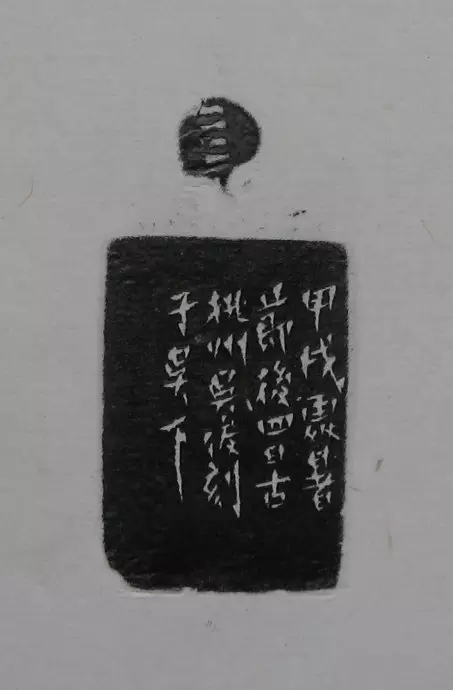 甲戌處暑
節後四日古
桃州吳刻
于吳下